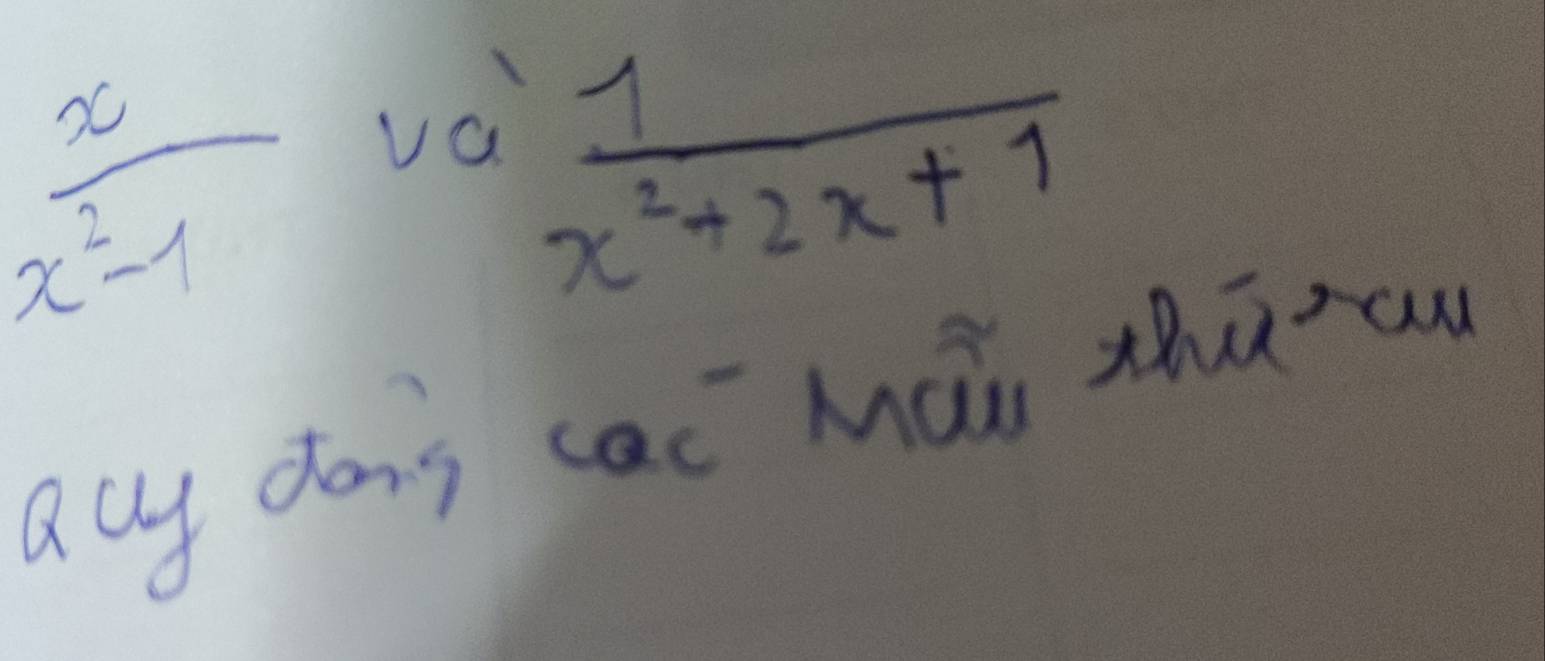 x/(x²-1) và 1/(x²+2x+1)
Quy đồng các mẫu thức sau